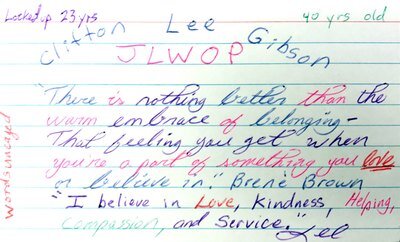 Locked up 23 yrs
40 yrs old
Clifton Lee Gibson
JLWOP
"There is nothing better than the
warm embrace of belonging-
That feeling you get when
you're a part of something you love
or believe in." Brenè Brown
"I believe in Love, Kindness, Helping,
Compassion, and Service." Lee
words uncaged